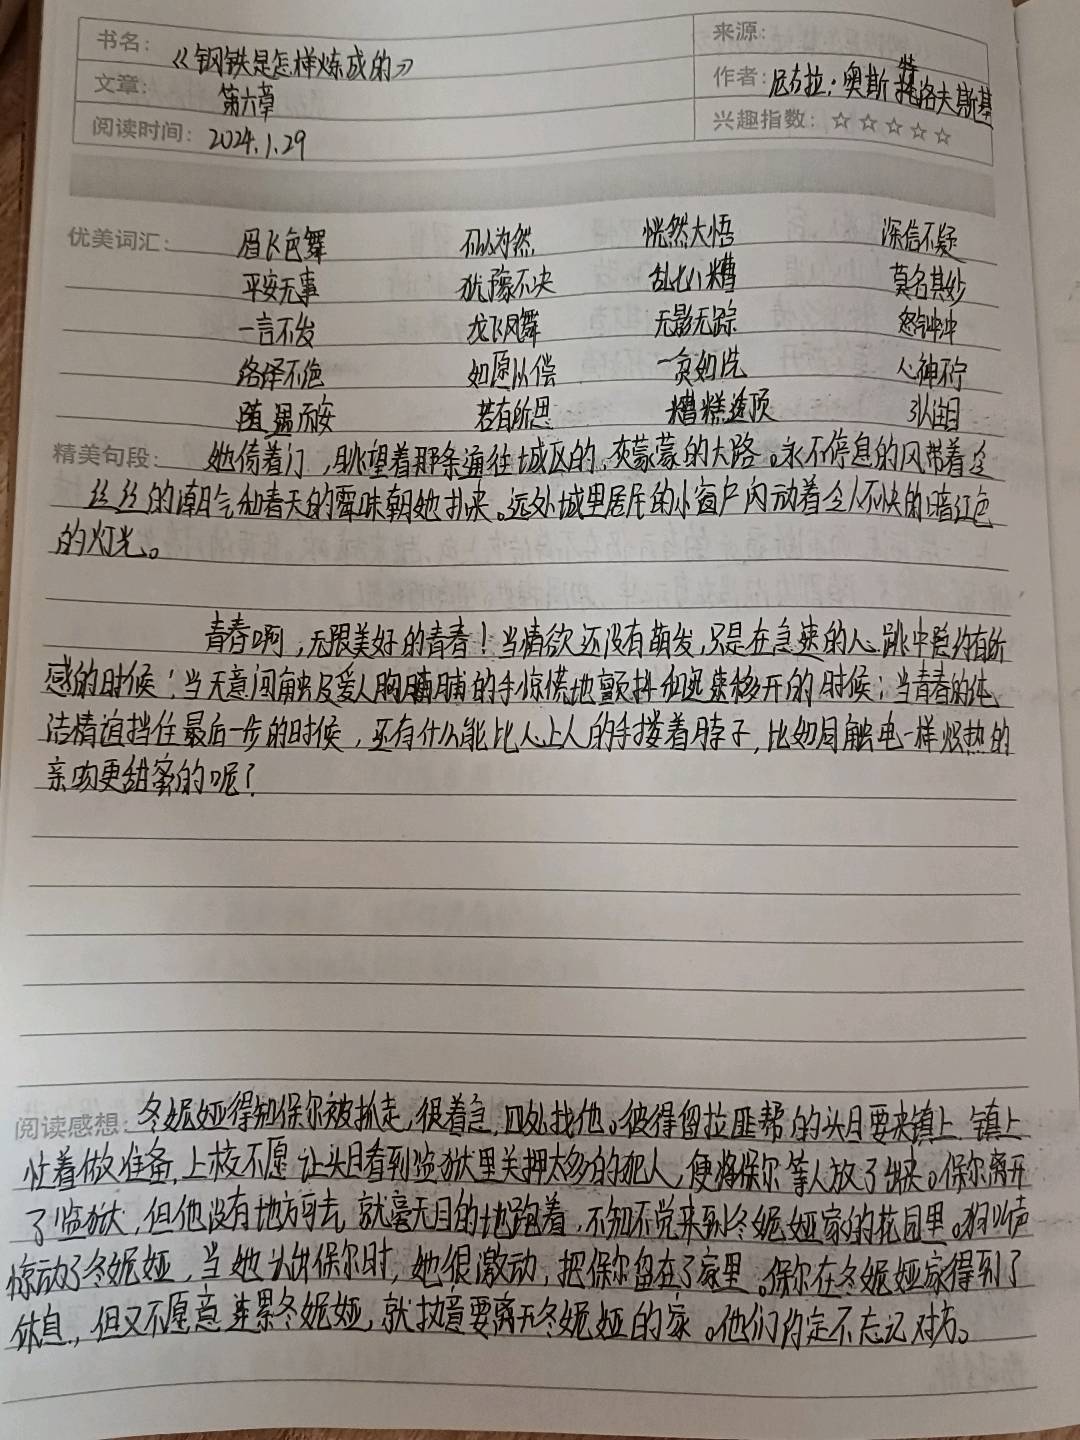 书名：《钢铁是怎样炼成的》
来源：
文章：第六章
作者：尼古拉·奥斯特洛夫斯基
阅读时间：2024.1.29
兴趣指数：☆☆☆☆☆
优美词汇：眉飞色舞 不以为然 恍然大悟 深信不疑
平安无事 犹豫不决 乱七八糟 莫名其妙
一言不发 龙飞凤舞 无影无踪 怒气冲冲
络绎不绝 如愿以偿 一贫如洗 心神不宁
随遇而安 若有所思 糟糕透顶 引人注目
精美句段：她倚着门，眺望着那条通往城区的，灰蒙蒙的大路。永不停息的风带着
丝丝的潮气和春天的霉味朝她扑来。远处城里居民的小窗户内动着令人不快的暗红色
的灯光。
青春啊，无限美好的青春！当情欲还没有萌发，只是在急速的心跳中隐约有所
感的时候；当无意间触及爱人胸脯的手惊慌地颤抖和迅速移开的时候；当青春的纯
洁情谊挡住最后一步的时候，还有什么能比心上人的手搂着脖子，比如同触电一样炽热的
亲吻更甜蜜的呢？
阅读感想：冬妮娅得知保尔被抓走，很着急，四处找他。彼得留拉匪帮的头目要来镇上，镇上
忙着做准备，上校不愿让头目看到监狱里关押太多的犯人，便将保尔等人放了出来。保尔离开
了监狱，但他没有地方可去，就毫无目的地跑着，不知不觉来到冬妮娅家的花园里。狗叫声
惊动了冬妮娅，当她认出保尔时，她很激动，把保尔留在了家里。保尔在冬妮娅家得到了
休息，但又不愿意连累冬妮娅，就执意要离开冬妮娅的家。他们约定不忘记对方。